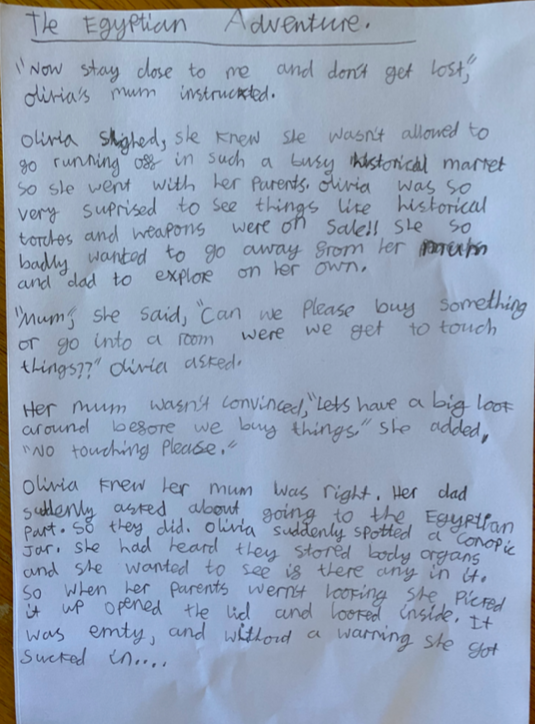 The Egyptian Adventure.
"Now stay close to me and don't get lost,"
Olivia's mum instructed.
Olivia sighed, she knew she wasn't allowed to
go running off in such a busy historical market
so she went with her parents. Olivia was so
very suprised to see things like historical
torches and weapons were on sale!! She so
badly wanted to go away from her mum
and dad to explore on her own.
"Mum", she said, "Can we please buy something
or go into a room were we get to touch
things??" Olivia asked.
Her mum wasn't convinced, "Lets have a big look
around before we buy things." She added,
"No touching please."
Olivia knew her mum was right. Her dad
suddenly asked about going to the Egyptian
part. So they did. Olivia suddenly spotted a conopic
jar. She had heard they stored body organs
and she wanted to see if there any in it.
So when her parents wern't looking she picked
it up opened the lid and looked inside. It
was emty, and without a warning she got
sucked in....